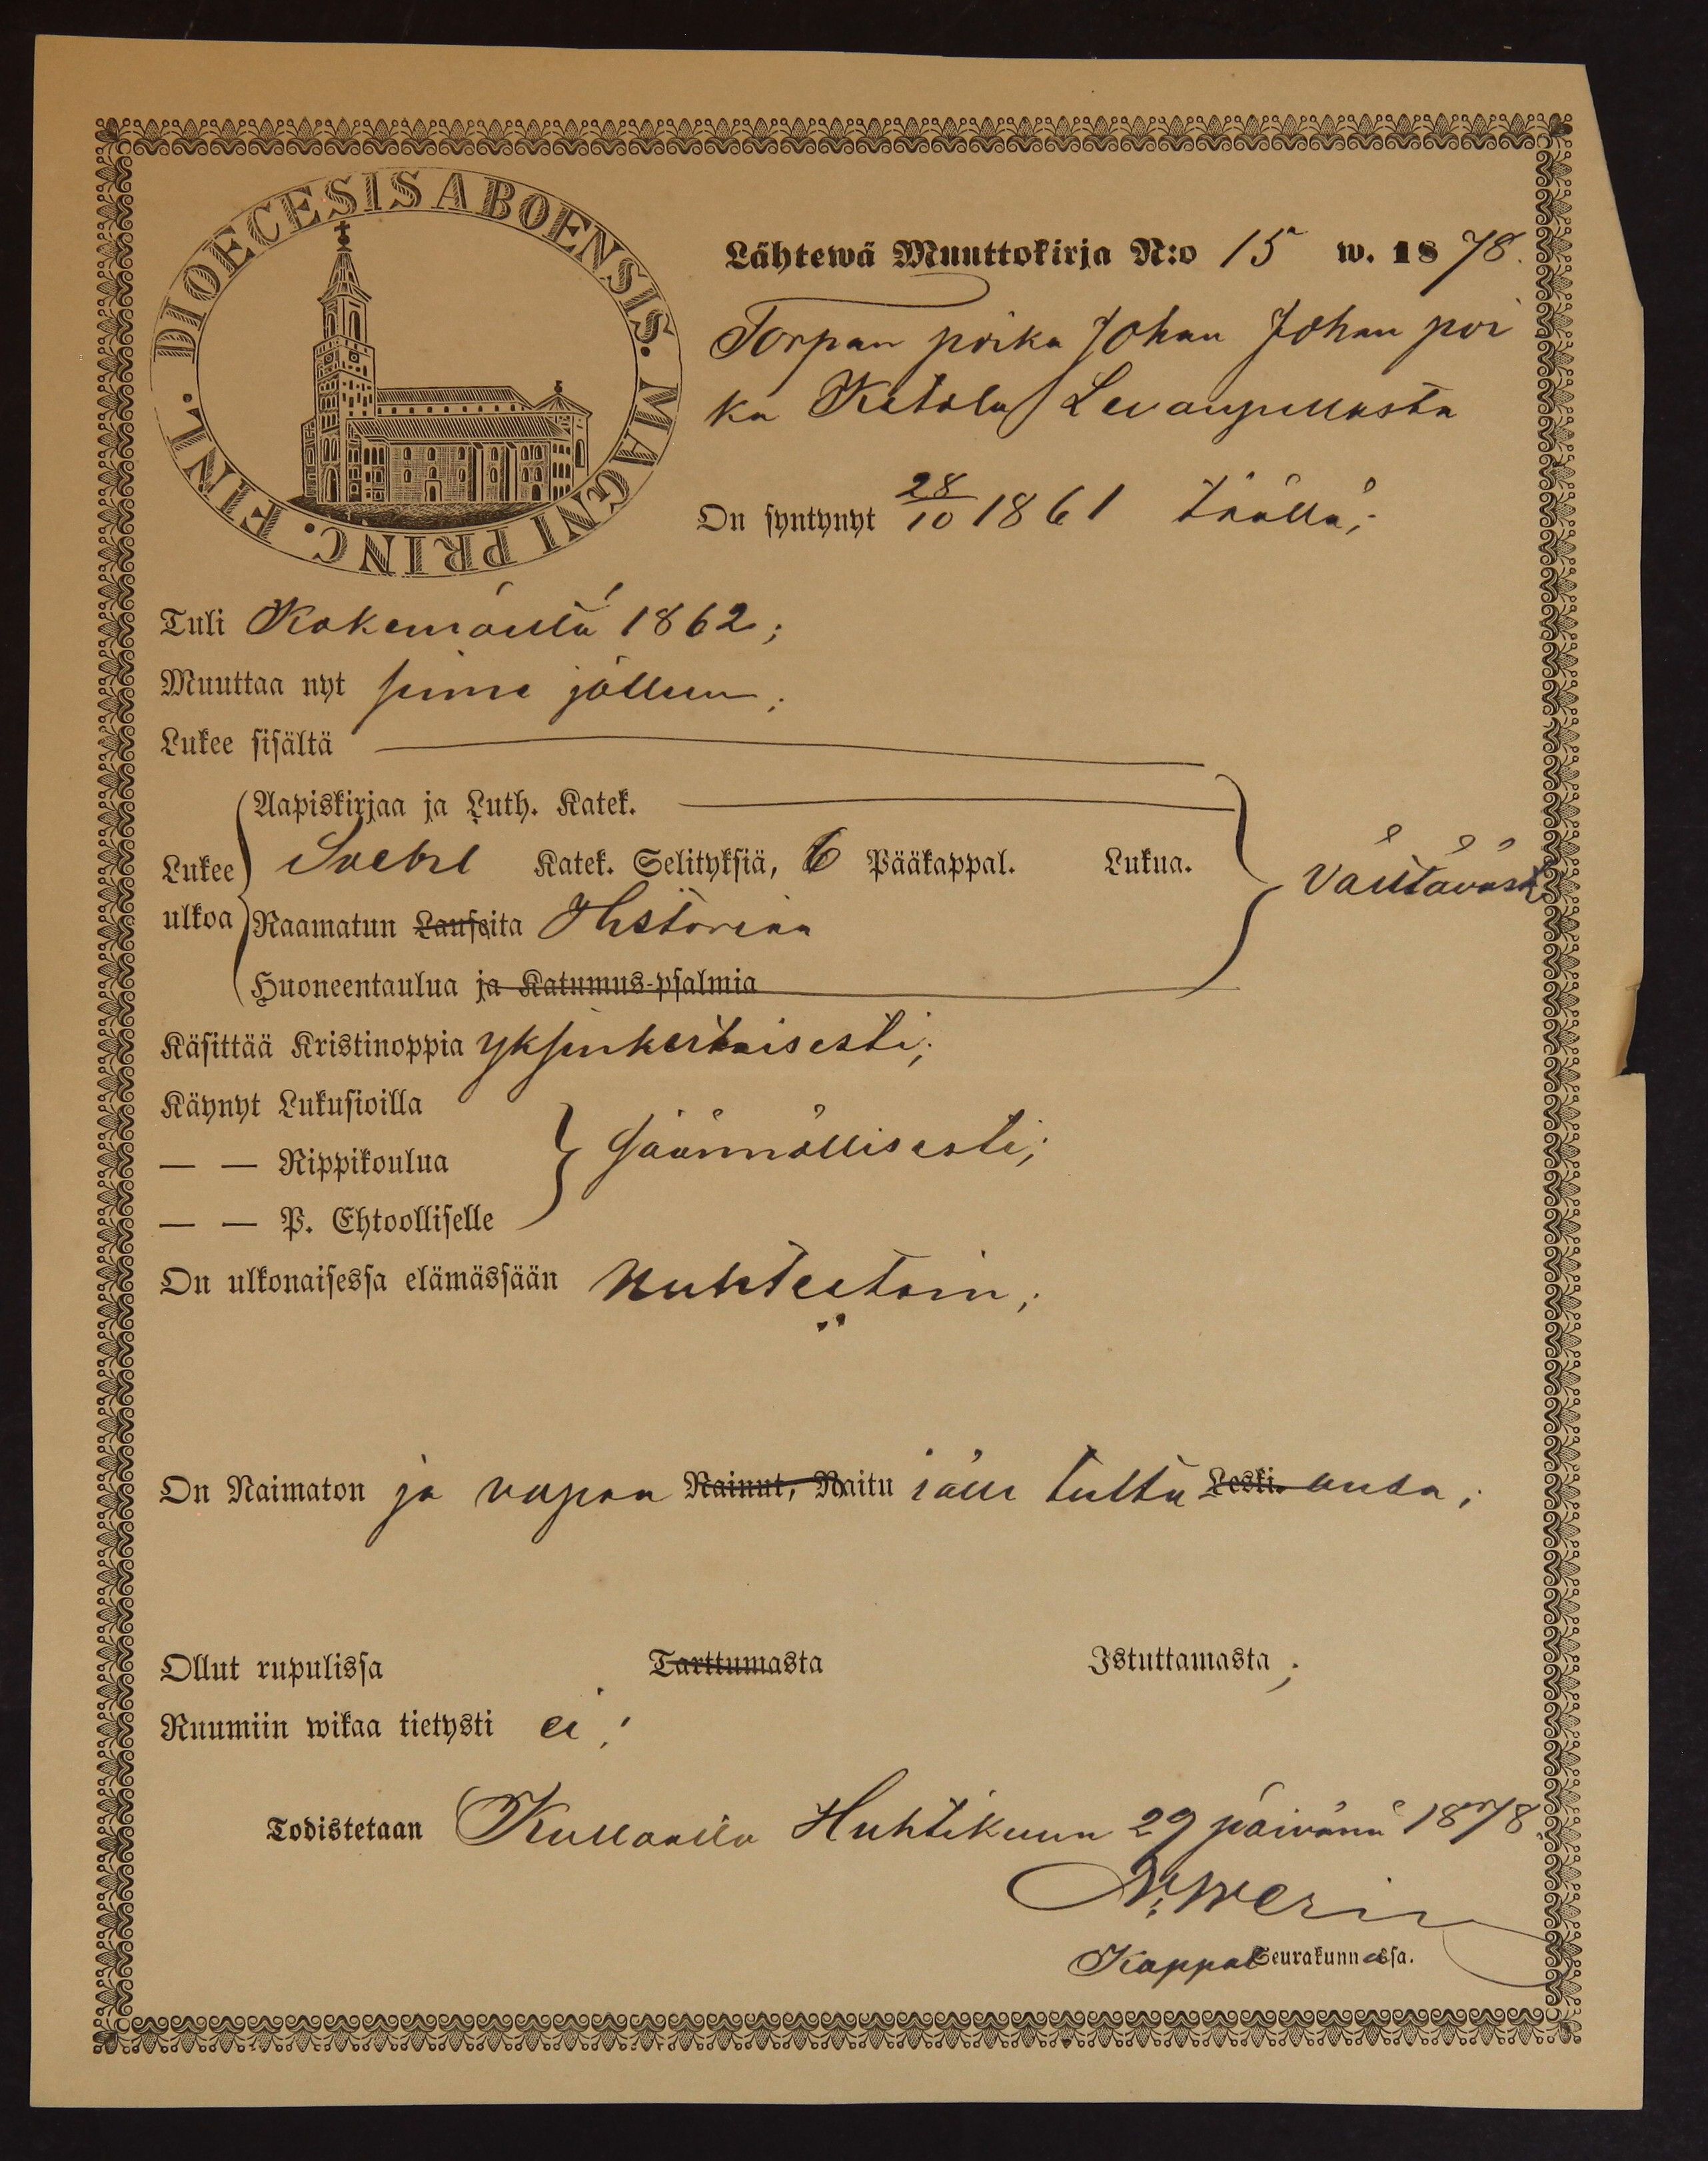 DIOECESIS ABOENSIS. MAGNI PRINC. FINL.
Lähtewä Muuttokirja N:o 15 w. 1878.
Torpan poika Johan Johan poi
ka Ketola Levanpellosta
On syntynyt 28/10 1861 täällä;
Tuli Kokemäeltä 1862;
Muuttaa nyt sinne jälleen;
Lukee sisältä
Aapiskirjaa ja Luth. Katek.
Lukee ulkoa
Svebel Katek. Selityksiä, 6 Pääkappal. Lukua.
Välttäväst
Raamatun Lauseita Historiaa
Huoneentaulua ja Katumus-psalmia
Käsittää Kristinoppia yksinkertaisesti;
Käynyt Lukusioilla
— — Rippikoulua säännöllisesti;
— — P. Ehtoolliselle
On ulkonaisessa elämässään Nuhteetoin;
On Naimaton ja vapaa Nainut, Naitu tultu Leski.
Ollut rupulissa Tarttumasta Istuttamasta;
Ruumiin wikaa tietysti ei;
Todistetaan Kullaalla Huhtikuun 29 päivänä 1878
Kappel Seurakunnassa.